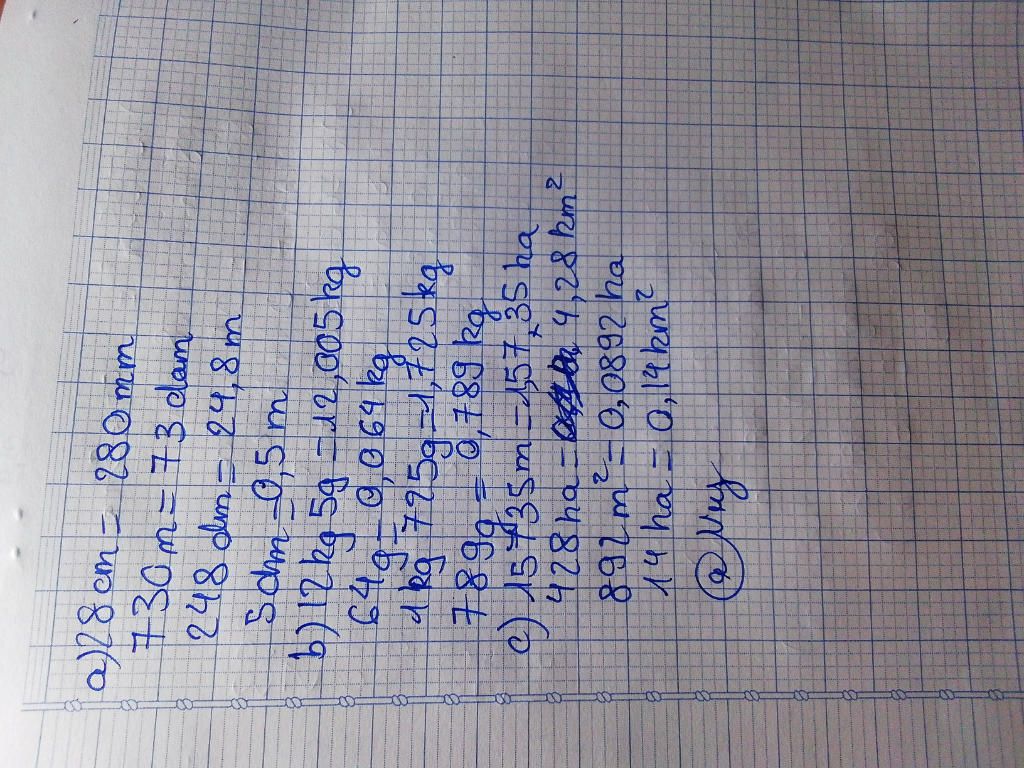 a) 28 cm = 280 mm
730 m = 73 dam
248 dm = 24,8 m
5 dm = 0,5 m
b) 12 kg 5g = 12,005 kg
64 g = 0,064 kg
1 kg 725g = 1,725 kg
789g = 0,789 kg
c) 15735 m = 157,35 ha
428 ha = 4,28 km²
892 m² = 0,0892 ha
14 ha = 0,14 km²